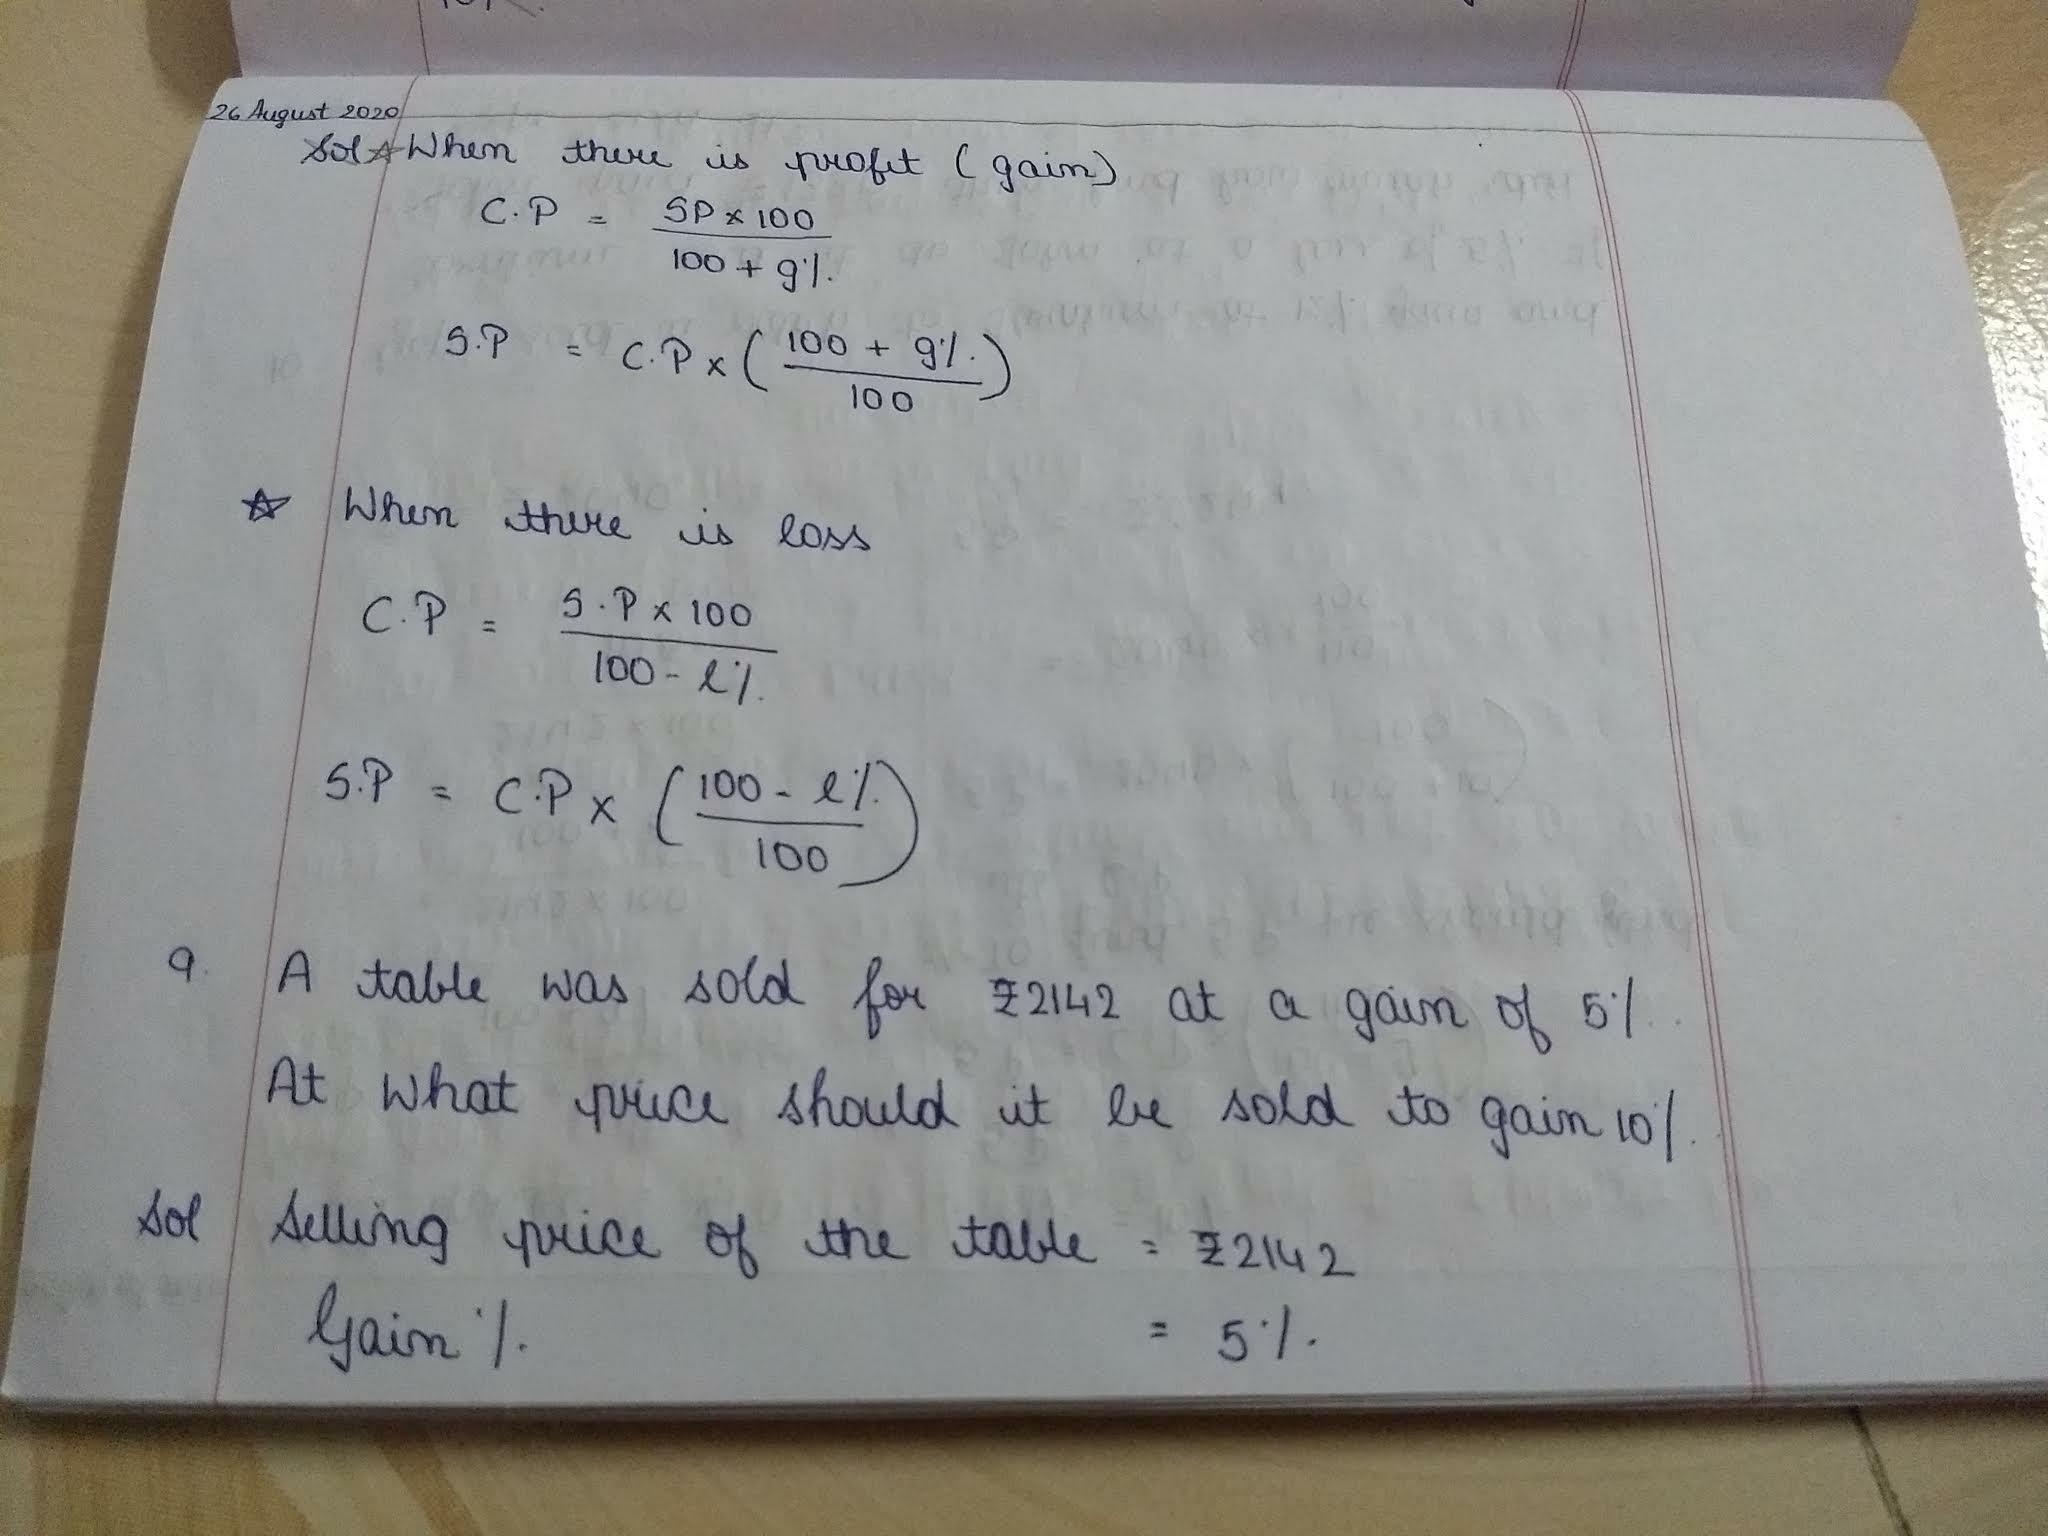 26 August 2020
Sol ☆ When there is profit (gain)
C.P = SP x 100
100 + g%.
S.P = C.P x ( 100 + g%. )
100
☆ When there is loss
C.P = S.P x 100
100 - l%.
S.P = C.P x ( 100 - l%. )
100
9. A table was sold for ₹2142 at a gain of 5%.
At what price should it be sold to gain 10%.
Sol Selling price of the table = ₹2142
Gain %. = 5%.